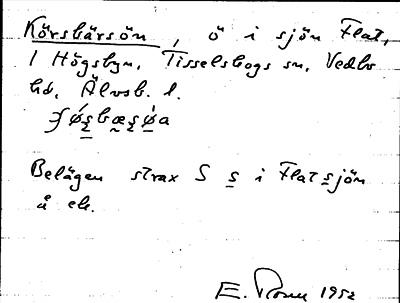 Körsbärsön, ö i sjön Flat,
l Högsbyn, Tisselskogs sn, Vedbo
hd, Älvsb. l.
ʒǿs̲bæ̲s̲ø̲̀a
Belägen strax S s̲ i Flatsjön
å ek.
E. Rosen 1952